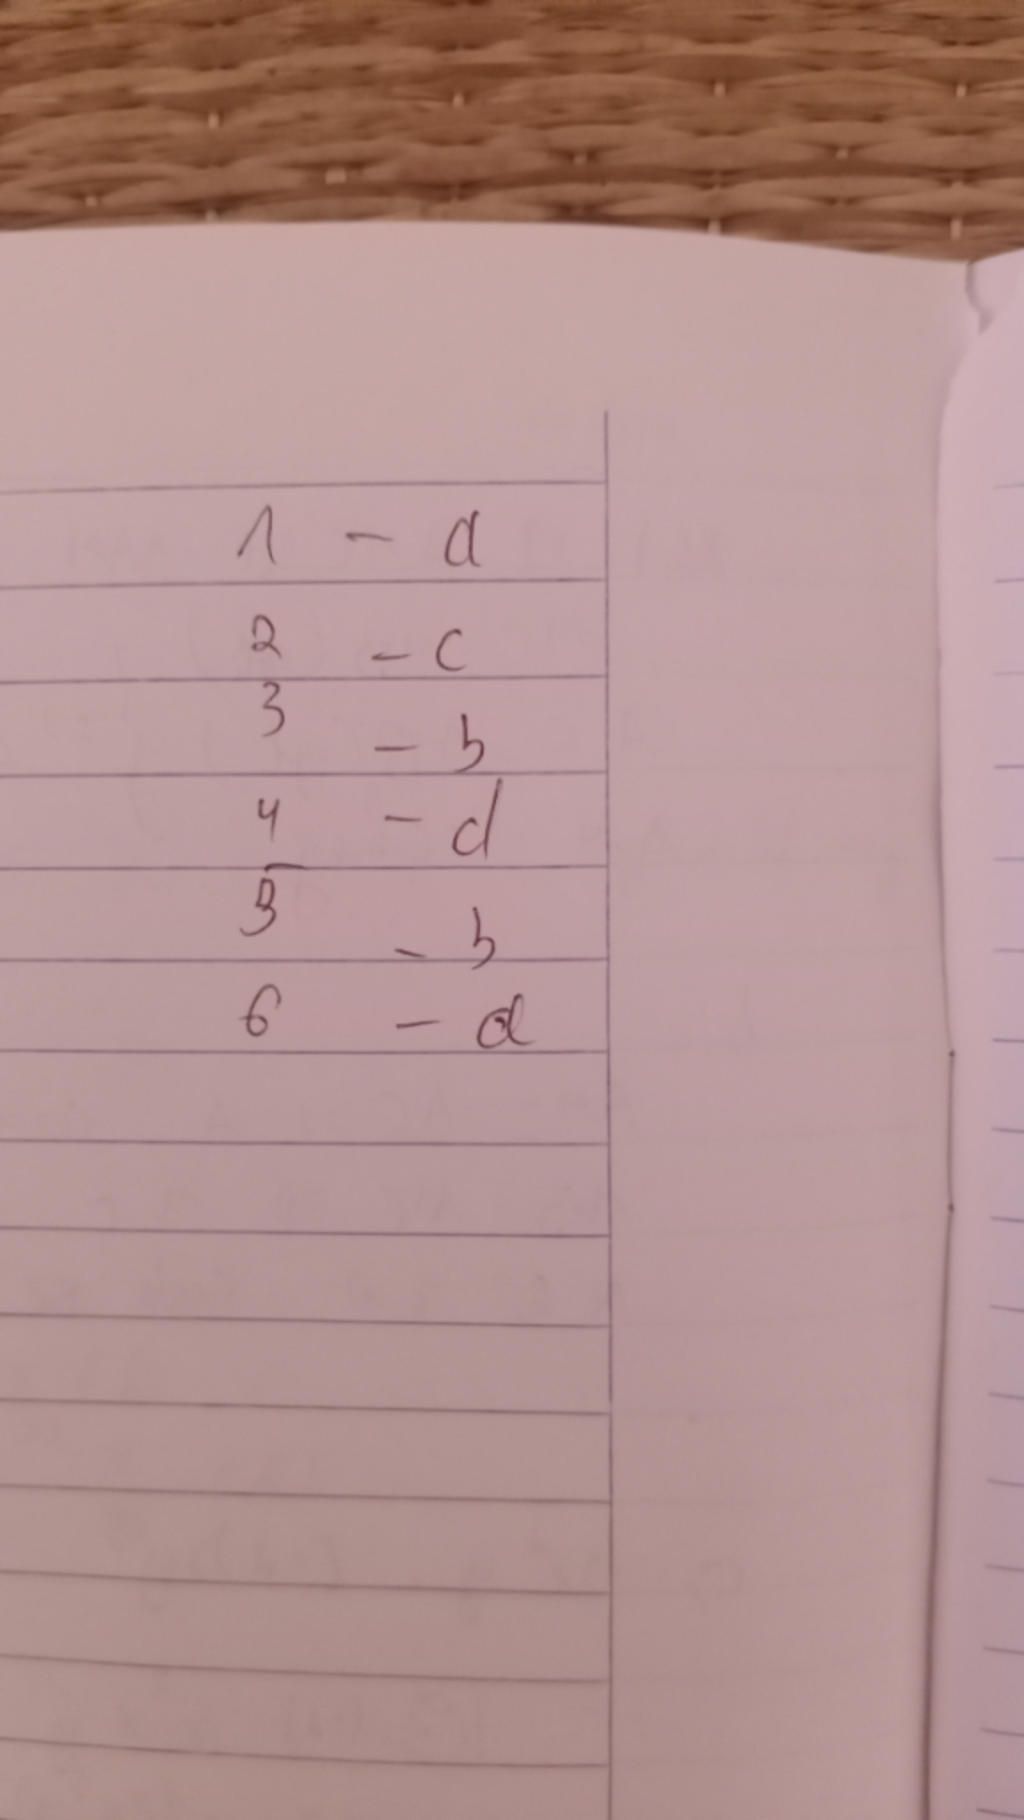 1 - d
2 - c
3 - b
4 - d
5 - b
6 - d